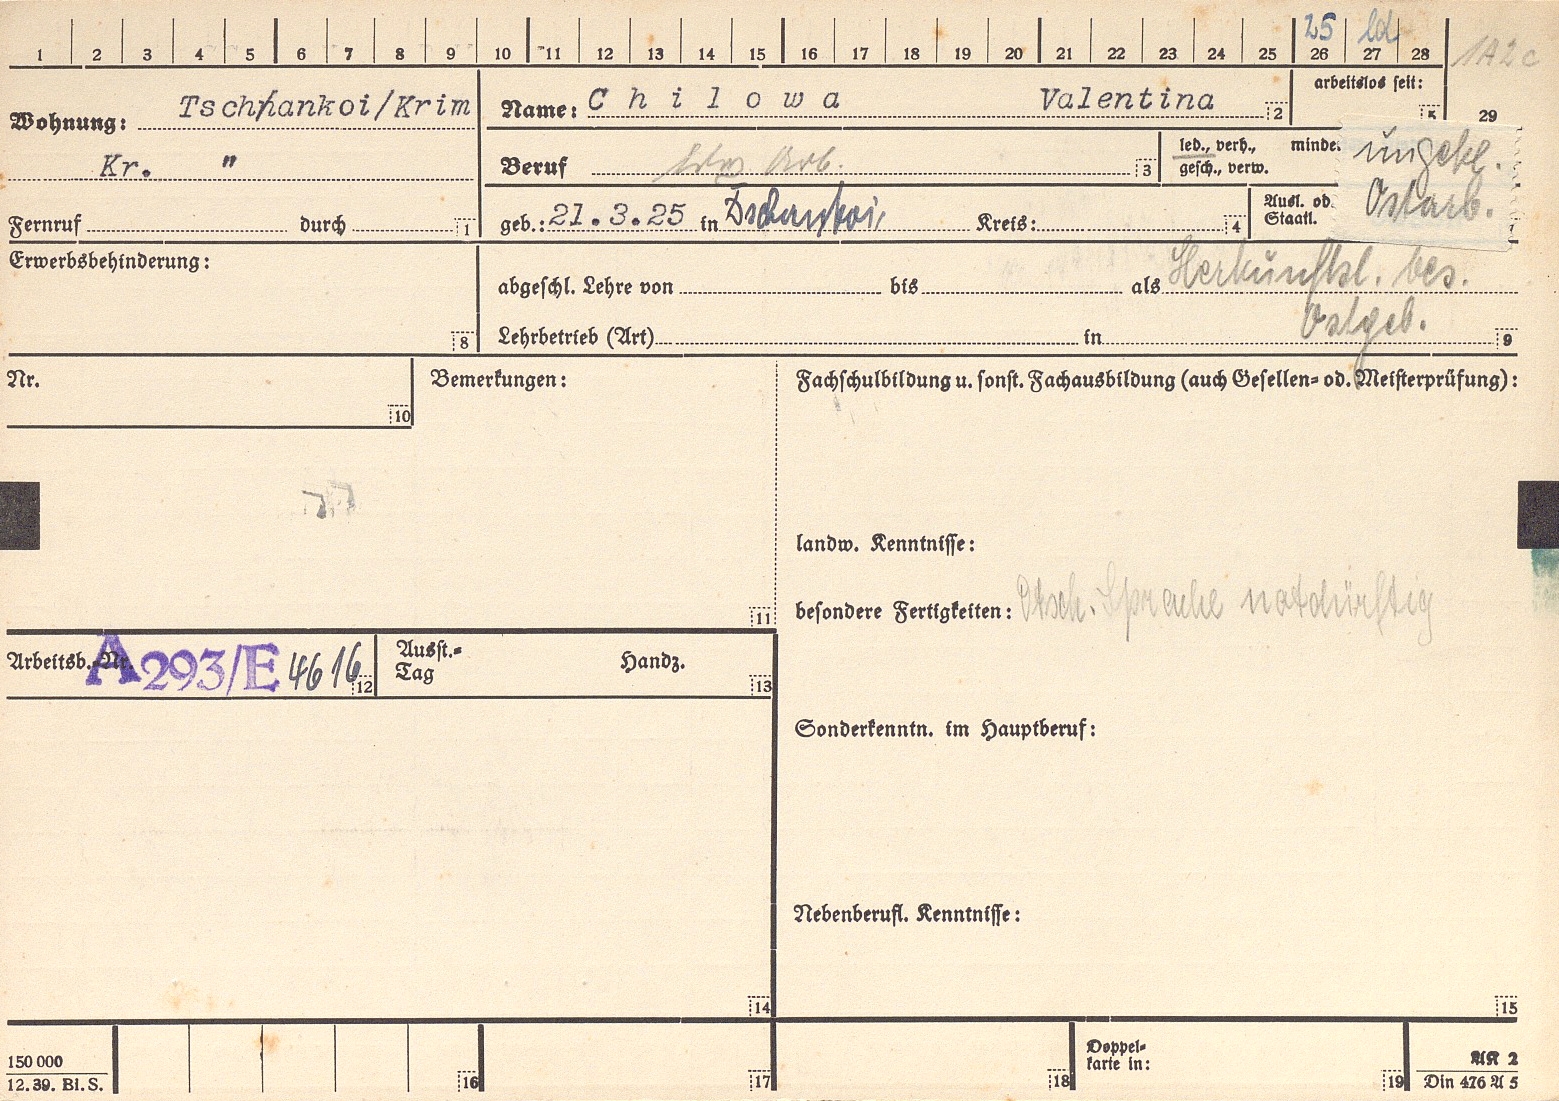 25 ld.
1 2 3 4 5 6 7 8 9 10 11 12 13 14 15 16 17 18 19 20 21 22 23 24 25 26 27 28
1A2c
29
Wohnung: Tschankoi/Krim
Kr. "
Fernruf durch 1
Name: Chilowa Valentina 2
arbeitslos seit: 5
Beruf Arb. 3
led., verh., gesch., verw.
minde
ungekl.
Ostarb.
geb.: 21.3.25 in Dschankoi, Kreis: 4
Ausl. od. Staatl.
Erwerbsbehinderung: 8
abgeschl. Lehre von bis als Herkunftsl. bes.
Ostgeb.
Lehrbetrieb (Art) in 9
Nr. 10
Bemerkungen: 11
Fachschulbildung u. sonst. Fachausbildung (auch Gesellen= od. Meisterprüfung):
landw. Kenntnisse:
besondere Fertigkeiten: Dtsch. Sprache notdürftig
Arbeitsb.-Nr. A 293/E 4616 12
Ausst.=
Tag
Handz. 13
Sonderkenntn. im Hauptberuf:
Nebenberufl. Kenntnisse:
14
15
150 000
12.39. Bl.S.
16
17
18
Doppel=
karte in:
19
AK 2
Din 476 A 5